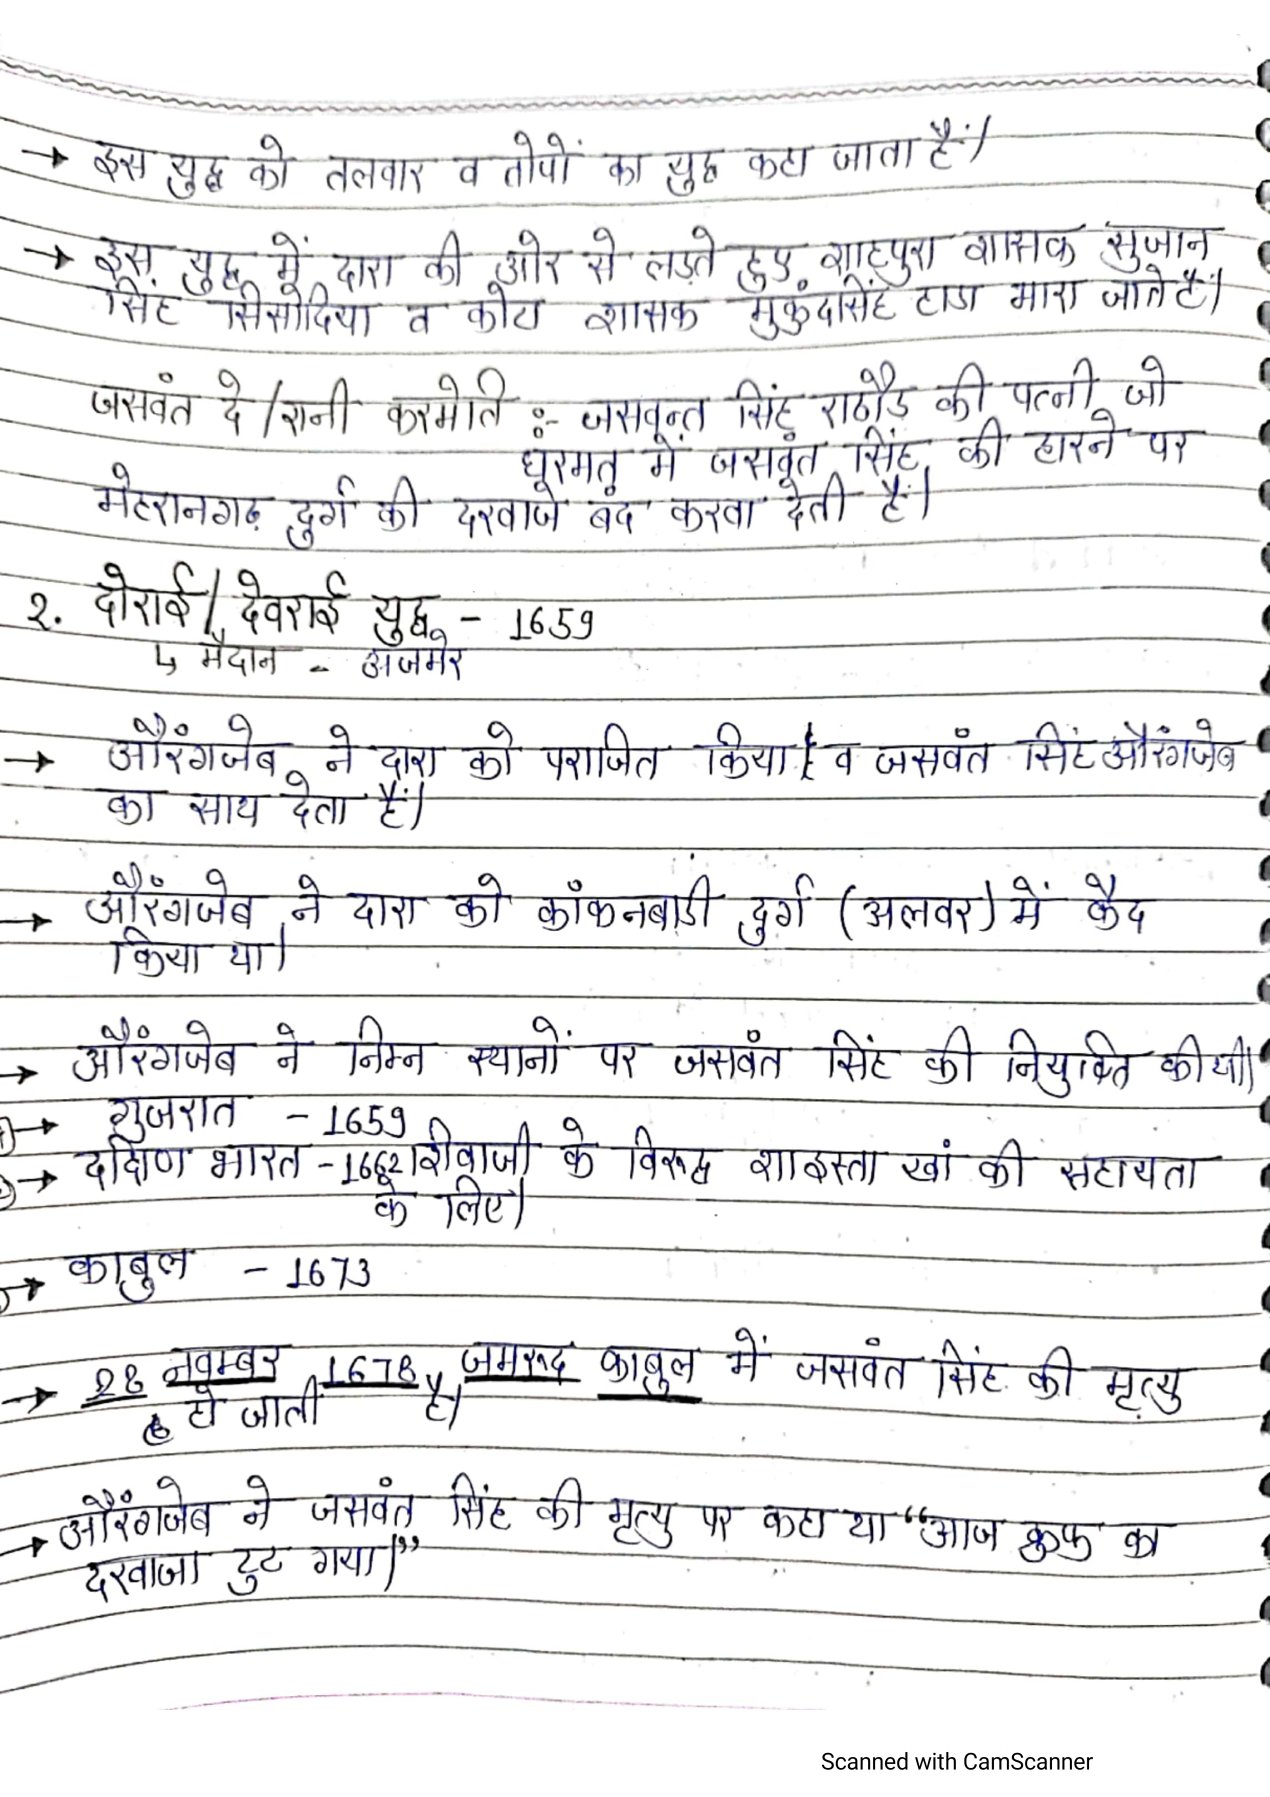 → इस युद्ध को तलवार व तोपों का युद्ध कहा जाता हैं।
→ इस युद्ध में दारा की ओर से लड़ते हुए शाहपुरा शासक सुजान
सिंह सिसोदिया व कोटा शासक मुकुंदसिंह हाडा मारा जाते हैं।
जसवंत दे /रानी करमेति :- जसवन्त सिंह राठौड़ की पत्नी जो
धूरमत में जसवंत सिंह की हारने पर
मेहरानगढ़ दुर्ग की दरवाजे बंद करवा देती हैं।
2. दोराई/देवराई युद्ध - 1659
↳ मैदान - अजमेर
→ औरंगजेब ने दारा को पराजित किया व जसवंत सिंह औरंगजेब
का साथ देता हैं।
→ औरंगजेब ने दारा को कांकनबाडी दुर्ग (अलवर) में कैद
किया था।
→ औरंगजेब ने निम्न स्थानों पर जसवंत सिंह की नियुक्ति की थी।
→ गुजरात - 1659
→ दक्षिण भारत - 1662। शिवाजी के विरुद्ध शाइस्ता खां की सहायता
के लिए।
→ काबुल - 1673
→ 28 नवम्बर 1678, जमरूद काबुल में जसवंत सिंह की मृत्यु
हो जाती है।
→ औरंगजेब ने जसवंत सिंह की मृत्यु पर कहा था “आज कुफ्र का
दरवाजा टुट गया।”
Scanned with CamScanner